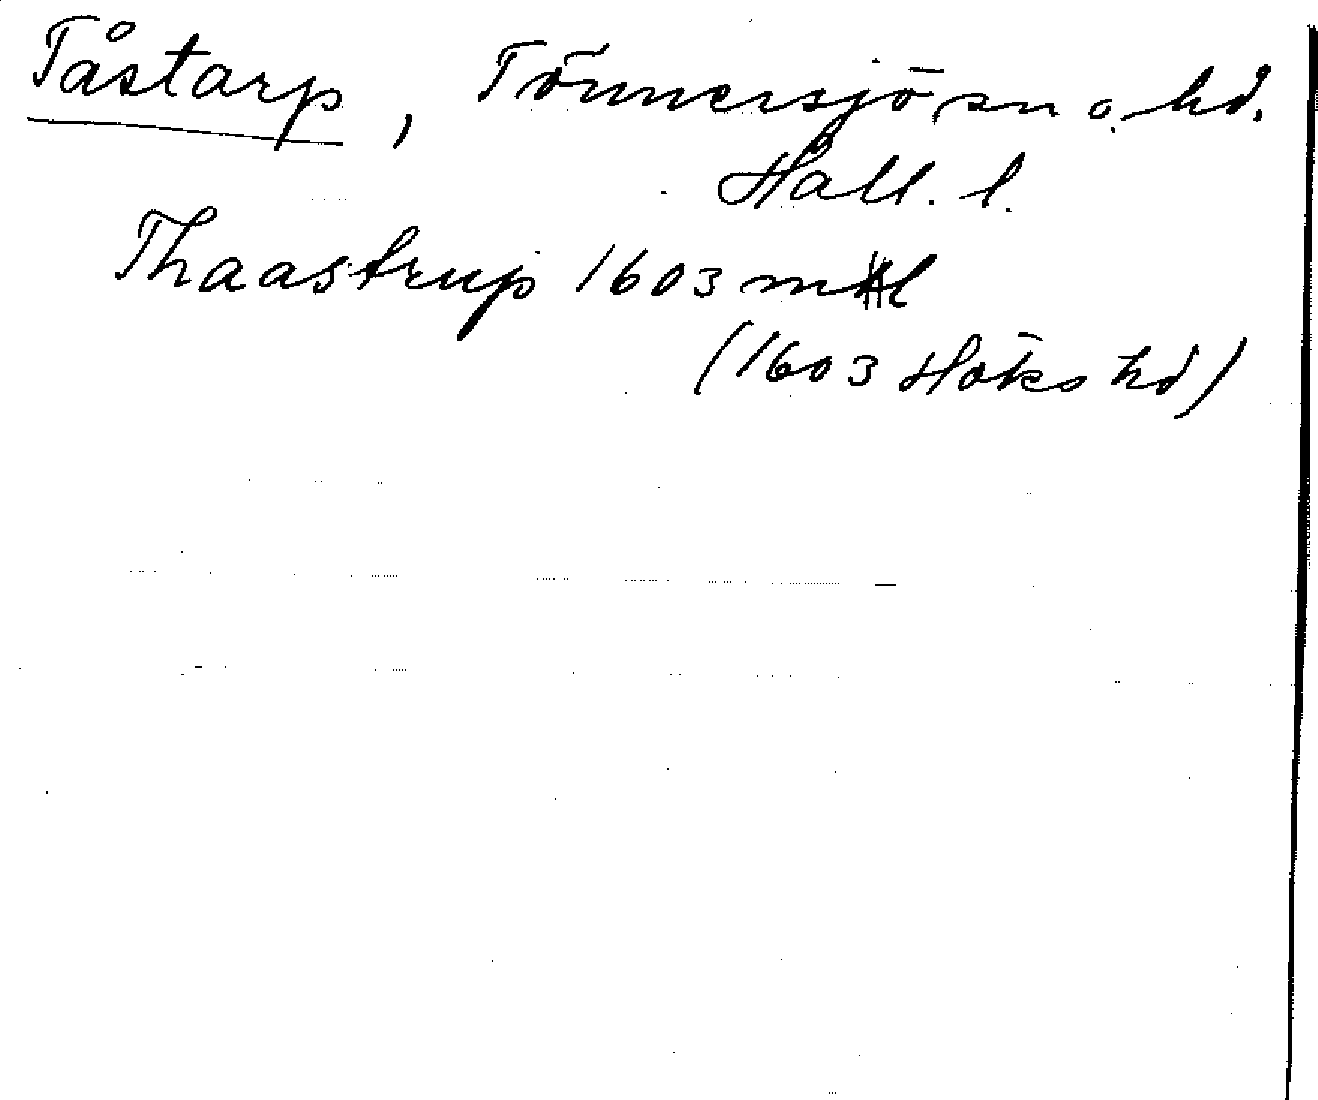 Tåstarp, Tönnersjö sn o. hd.
Hall. l.
Thaastrup 1603
(1603 Höks hd)